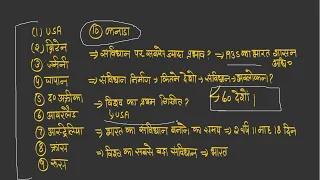 (1) USA
(2) ब्रिटेन
(3) जर्मनी
(4) जापान
(5) द० अफ्रीका
(6) आयरलैंड
(7) आस्ट्रेलिया
(8) फ्रांस
(9) रूस
(10) कनाडा
⇒ संविधान पर सबसे ज्यादा प्रभाव? → 1935 का भारत शासन अधि०
⇒ संविधान निर्माण → कितने देशों → संविधान → अवलोकन?
→ 60 देशों
⇒ विश्व का प्रथम लिखित?
↳ USA
⇒ भारत का संविधान बनाने का समय ⇒ 2 वर्ष 11 माह 18 दिन
⇒ विश्व का सबसे बड़ा संविधान ⇒ भारत